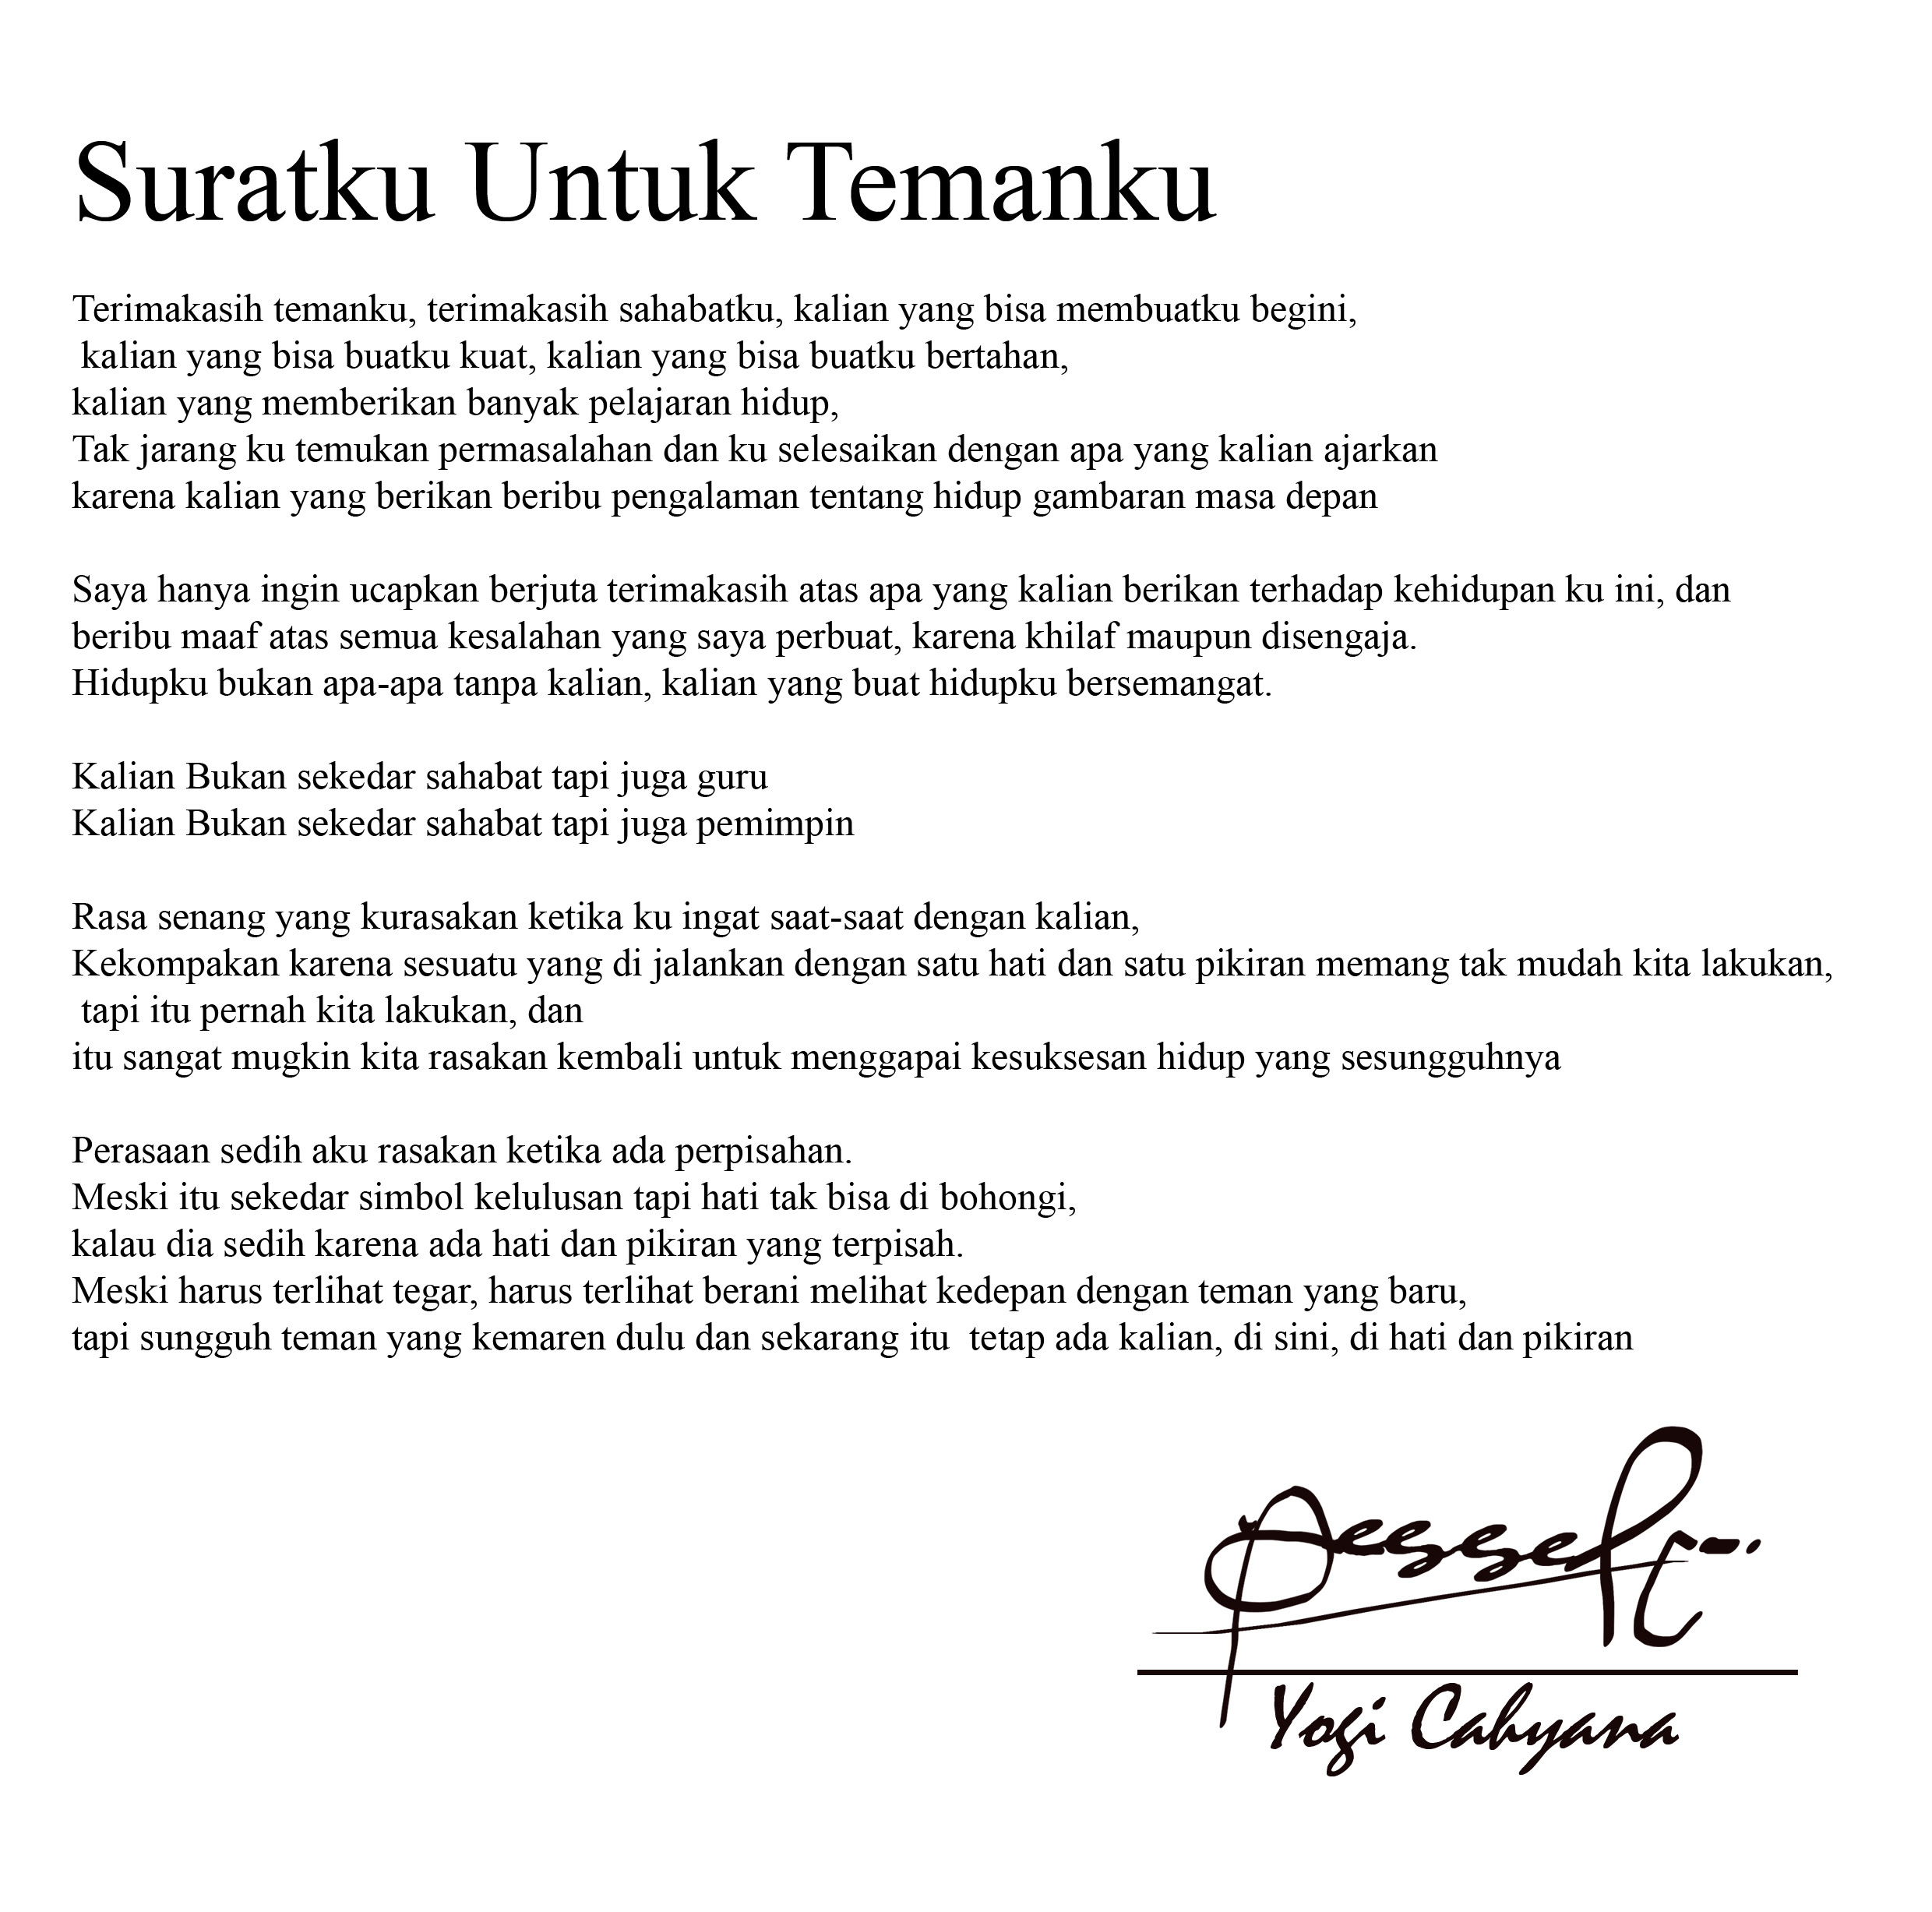 Suratku Untuk Temanku
Terimakasih temanku, terimakasih sahabatku, kalian yang bisa membuatku begini,
kalian yang bisa buatku kuat, kalian yang bisa buatku bertahan,
kalian yang memberikan banyak pelajaran hidup,
Tak jarang ku temukan permasalahan dan ku selesaikan dengan apa yang kalian ajarkan
karena kalian yang berikan beribu pengalaman tentang hidup gambaran masa depan
Saya hanya ingin ucapkan berjuta terimakasih atas apa yang kalian berikan terhadap kehidupan ku ini, dan
beribu maaf atas semua kesalahan yang saya perbuat, karena khilaf maupun disengaja.
Hidupku bukan apa-apa tanpa kalian, kalian yang buat hidupku bersemangat.
Kalian Bukan sekedar sahabat tapi juga guru
Kalian Bukan sekedar sahabat tapi juga pemimpin
Rasa senang yang kurasakan ketika ku ingat saat-saat dengan kalian,
Kekompakan karena sesuatu yang di jalankan dengan satu hati dan satu pikiran memang tak mudah kita lakukan,
tapi itu pernah kita lakukan, dan
itu sangat mugkin kita rasakan kembali untuk menggapai kesuksesan hidup yang sesungguhnya
Perasaan sedih aku rasakan ketika ada perpisahan.
Meski itu sekedar simbol kelulusan tapi hati tak bisa di bohongi,
kalau dia sedih karena ada hati dan pikiran yang terpisah.
Meski harus terlihat tegar, harus terlihat berani melihat kedepan dengan teman yang baru,
tapi sungguh teman yang kemaren dulu dan sekarang itu  tetap ada kalian, di sini, di hati dan pikiran
Yogi Cahyana